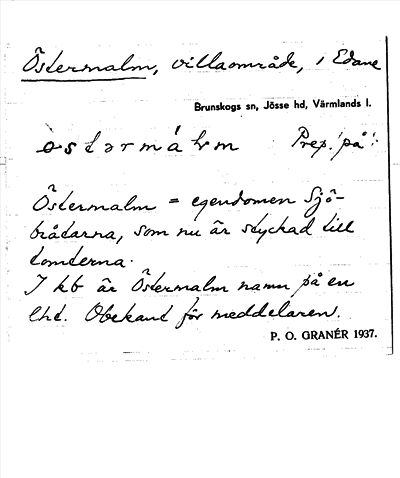 Östermalm, villaområde, i Edane
Brunskogs sn, Jösse hd, Värmlands l.
Prep. på
Östermalm = egendomen Sjö-
bråtarna, som nu är styckad till
tomterna.
I kb är Östermalm namn på en
lht. Obekant för meddelaren.
P. O. GRANÉR 1937.